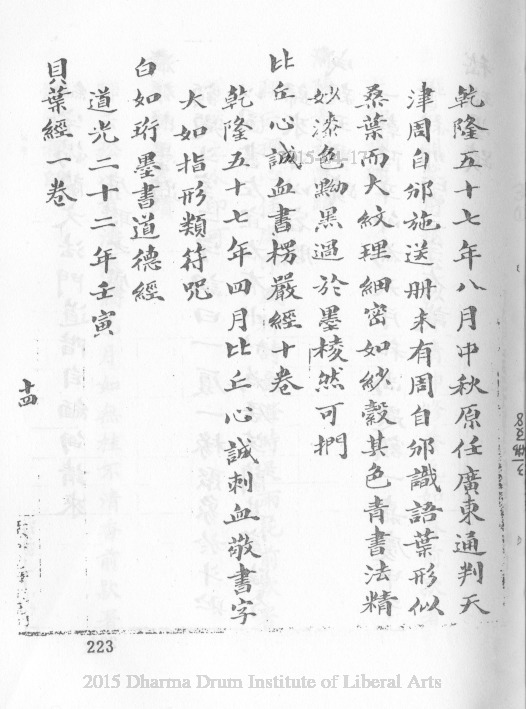 乾隆五十七年八月中秋原任廣東通判天
津周自邠施送册末有周自邠識語葉形似
桑葉而大紋理細密如紗縠其色青書法精
妙漆色黝黑過於墨棱然可捫
比丘心誠血書楞嚴經十卷
乾隆五十七年四月比丘心誠刺血敬書字
大如指形類符咒
白如珩墨書道德經
道光二十二年壬寅
貝葉經一卷
十四
223
2015 Dharma Drum Institute of Liberal Arts